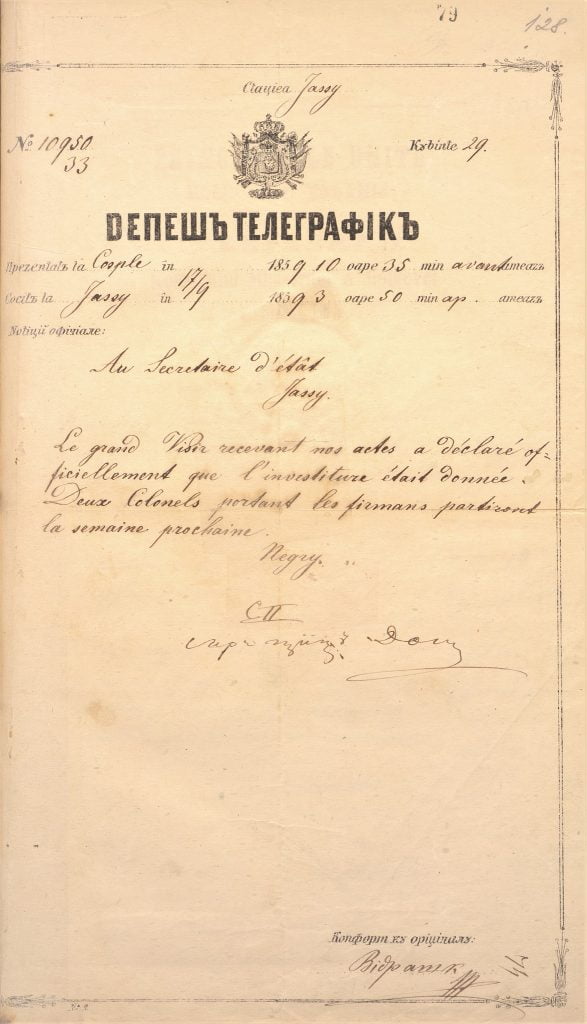 79
128.
Стаціеа Jassy
№ 10950
33
Кꙋвінте 29.
DЕПЕШЪ ТЕЛЕГРАФІКЪ
Презентатъ la Cosple în 17/9 1859 10 оаре 35 min avant амеазъ
Соситъ la Jassy în 17/9 1859 3 оаре 50 min ap. амеазъ
Notiції офіціале:
Au Secretaire d'état
Jassy.
Le grand Visir recevant nos actes a déclaré of=
ficiellement que l'investiture était donnée.
Deux Colonels portant les firmans partiront
la semaine prochaine.
Negry.
СП
Конформ кꙋ оріціналꙋ: